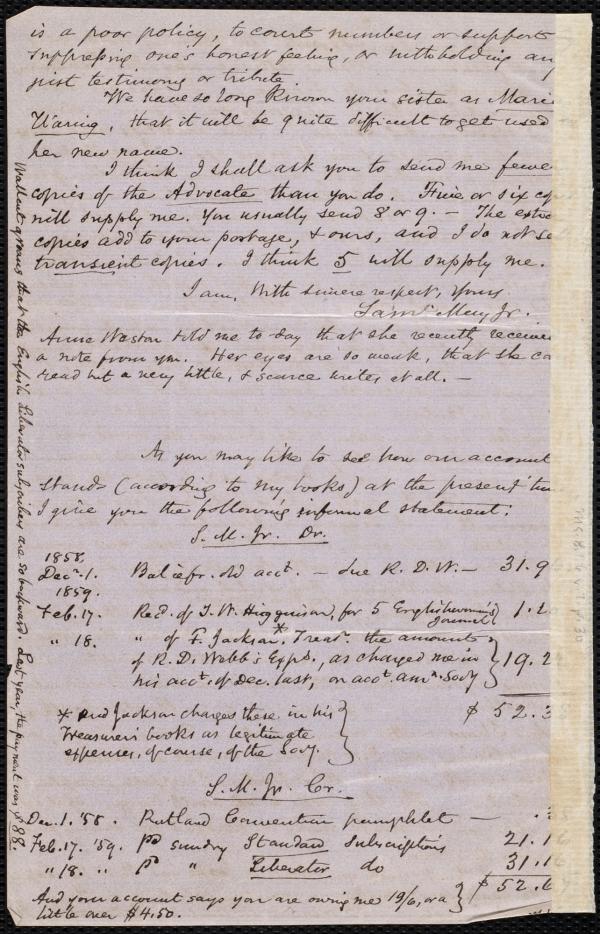 is a poor policy, to court numbers or support
suppressing one's honest feeling, or withholding any
just testimony or tribute.
We have so long known your sister as Maria
Waring, that it will be quite difficult to get used
her new name.
I think I shall ask you to send me fewer
copies of the Advocate than you do. Five or six cop
will supply me. You usually send 8 or 9. – The extra
copies add to your postage, & ours, and I do not se
transient copies. I think 5 will supply me.
I am, with sincere respect, yours
Saml. May Jr.
Anne Weston told me to-day that she recently receive
a note from you. Her eyes are so weak, that she ca
read but a very little, & scarce writes at all. –
As you may like to see how our account
stands (according to my books) at the present tim
I give you the following informal statement:
S. M. Jr. Dr.
1858.
Decr. 1. Bal. of fr. old acct. – due R. D. W. – 31.9
1859.
Feb. 17. Recd. of T. W. Higginson, for 5 Englishwoman's Journal 1.2
" 18. " of F. Jackson,* Treasr. the amounts
of R. D. Webb's Exps., as charged me in 19.2
his acct. of Dec. last, on acct. Amn. Socy
* and Jackson charges these in his $ 52.3
Treasurer's books as legitimate
expenses, of course, of the Socy.
S. M. Jr. Cr.
Dec. 1. '58. Rutland Convention pamphlet –
Feb. 17. '59. pd sundry Standard subscriptions 21.1
" 18. " pd " Liberator do 31.1
$ 52.6
And your account says you are owing me 19/6, or a
little over $4.50.
Wallcut groans that the English Liberator subscribers are so backward. Last year, the payment was $88.